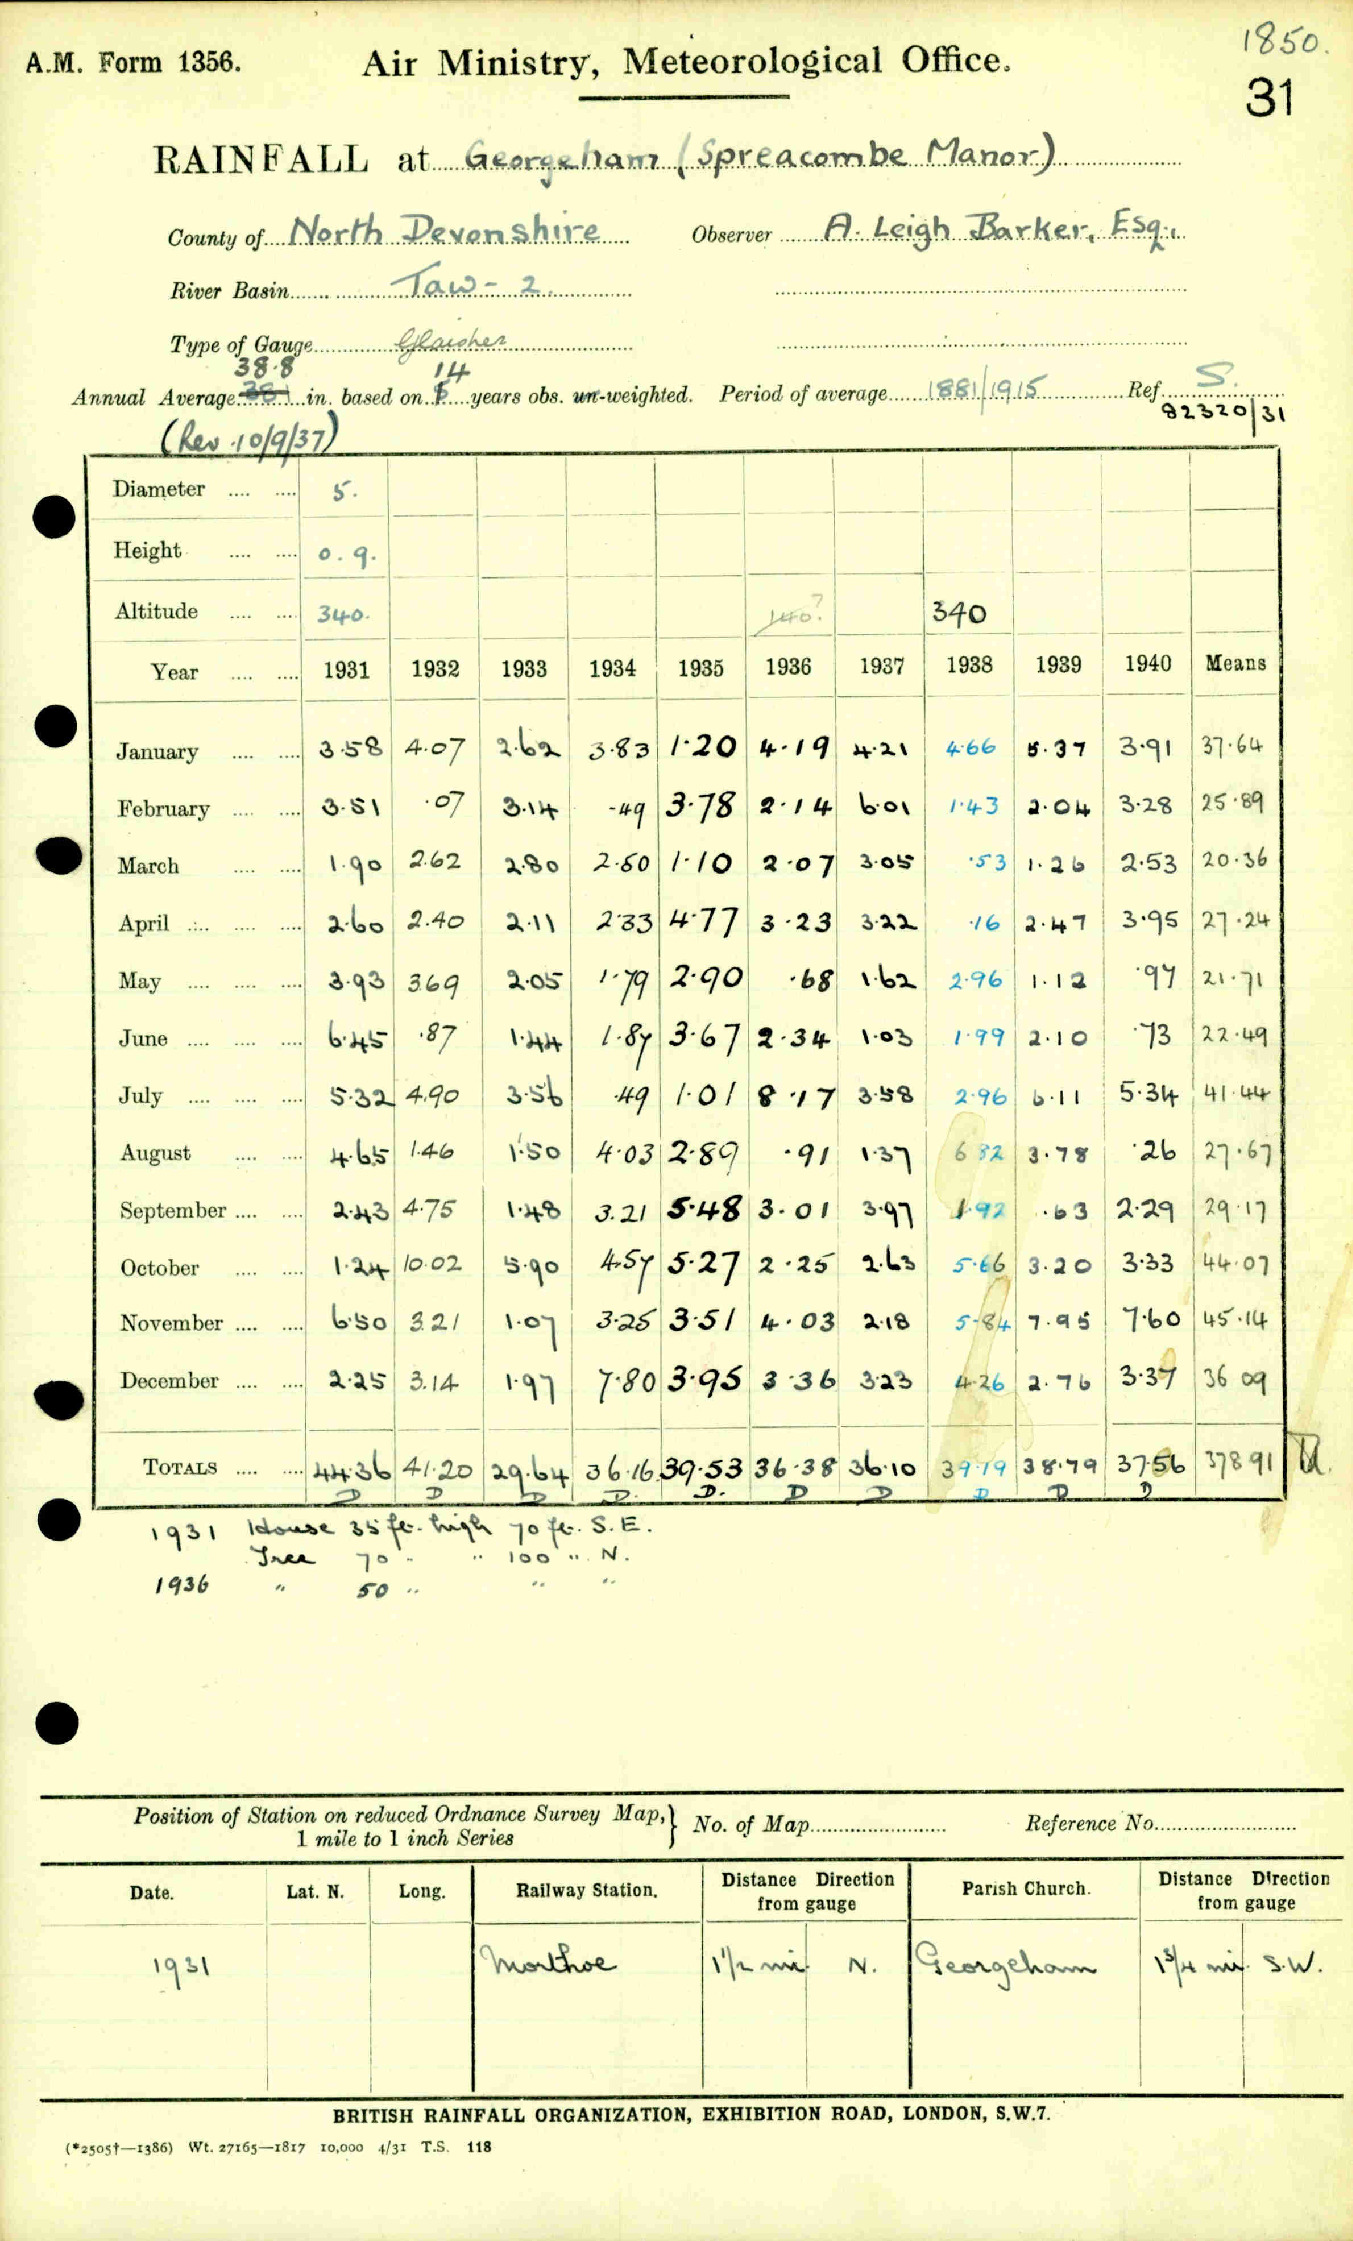 1850.
A.M. Form 1356. Air Ministry, Meteorological Office.
31
RAINFALL at Georgeham (Spreacombe Manor)
County of North Devonshire Observer A. Leigh Barker, Esq.,
River Basin Taw - 2.
Type of Gauge Glaisher
38.8 14
Annual Average in. based on years obs. un-weighted. Period of average 1881/1915 Ref. S.
82320/31
(Rev. 10/9/37)
Diameter 5.
Height 0.9.
Altitude 340. 140? 340
Year 1931 1932 1933 1934 1935 1936 1937 1938 1939 1940 Means
January 3.58 4.07 2.62 3.83 1.20 4.19 4.21 4.66 5.37 3.91 37.64
February 3.51 .07 3.14 .49 3.78 2.14 6.01 1.43 2.04 3.28 25.89
March 1.90 2.62 2.80 2.50 1.10 2.07 3.05 .53 1.26 2.53 20.36
April 2.60 2.40 2.11 2.33 4.77 3.23 3.22 .16 2.47 3.95 27.24
May 3.93 3.69 2.05 1.79 2.90 .68 1.62 2.96 1.12 .97 21.71
June 6.45 .87 1.44 1.87 3.67 2.34 1.03 1.99 2.10 .73 22.49
July 5.32 4.90 3.56 .49 1.01 8.17 3.58 2.96 6.11 5.34 41.44
August 4.65 1.46 1.50 4.03 2.89 .91 1.37 6.82 3.78 .26 27.67
September 2.43 4.75 1.48 3.21 5.48 3.01 3.97 1.92 .63 2.29 29.17
October 1.24 10.02 5.90 4.57 5.27 2.25 2.63 5.66 3.20 3.33 44.07
November 6.50 3.21 1.07 3.25 3.51 4.03 2.18 5.84 7.95 7.60 45.14
December 2.25 3.14 1.97 7.80 3.95 3.36 3.23 4.26 2.76 3.37 36 09
TOTALS 44.36 41.20 29.64 36.16 39.53 36.38 36.10 39.19 38.79 37.56 378 91
D D D D. D. D D D D D
1931 House 35 ft. high 70 ft. S.E.
Tree 70 " " 100 " N.
1936 " 50 " " "
Position of Station on reduced Ordnance Survey Map, } No. of Map Reference No.
1 mile to 1 inch Series
Date. Lat. N. Long. Railway Station. Distance Direction from gauge Parish Church. Distance Direction from gauge
1931 Morthoe 1½ mi. N. Georgeham 1¾ mi. S.W.
BRITISH RAINFALL ORGANIZATION, EXHIBITION ROAD, LONDON, S.W.7.
(*2505†—1386) Wt. 27165—1817 10,000 4/31 T.S. 118